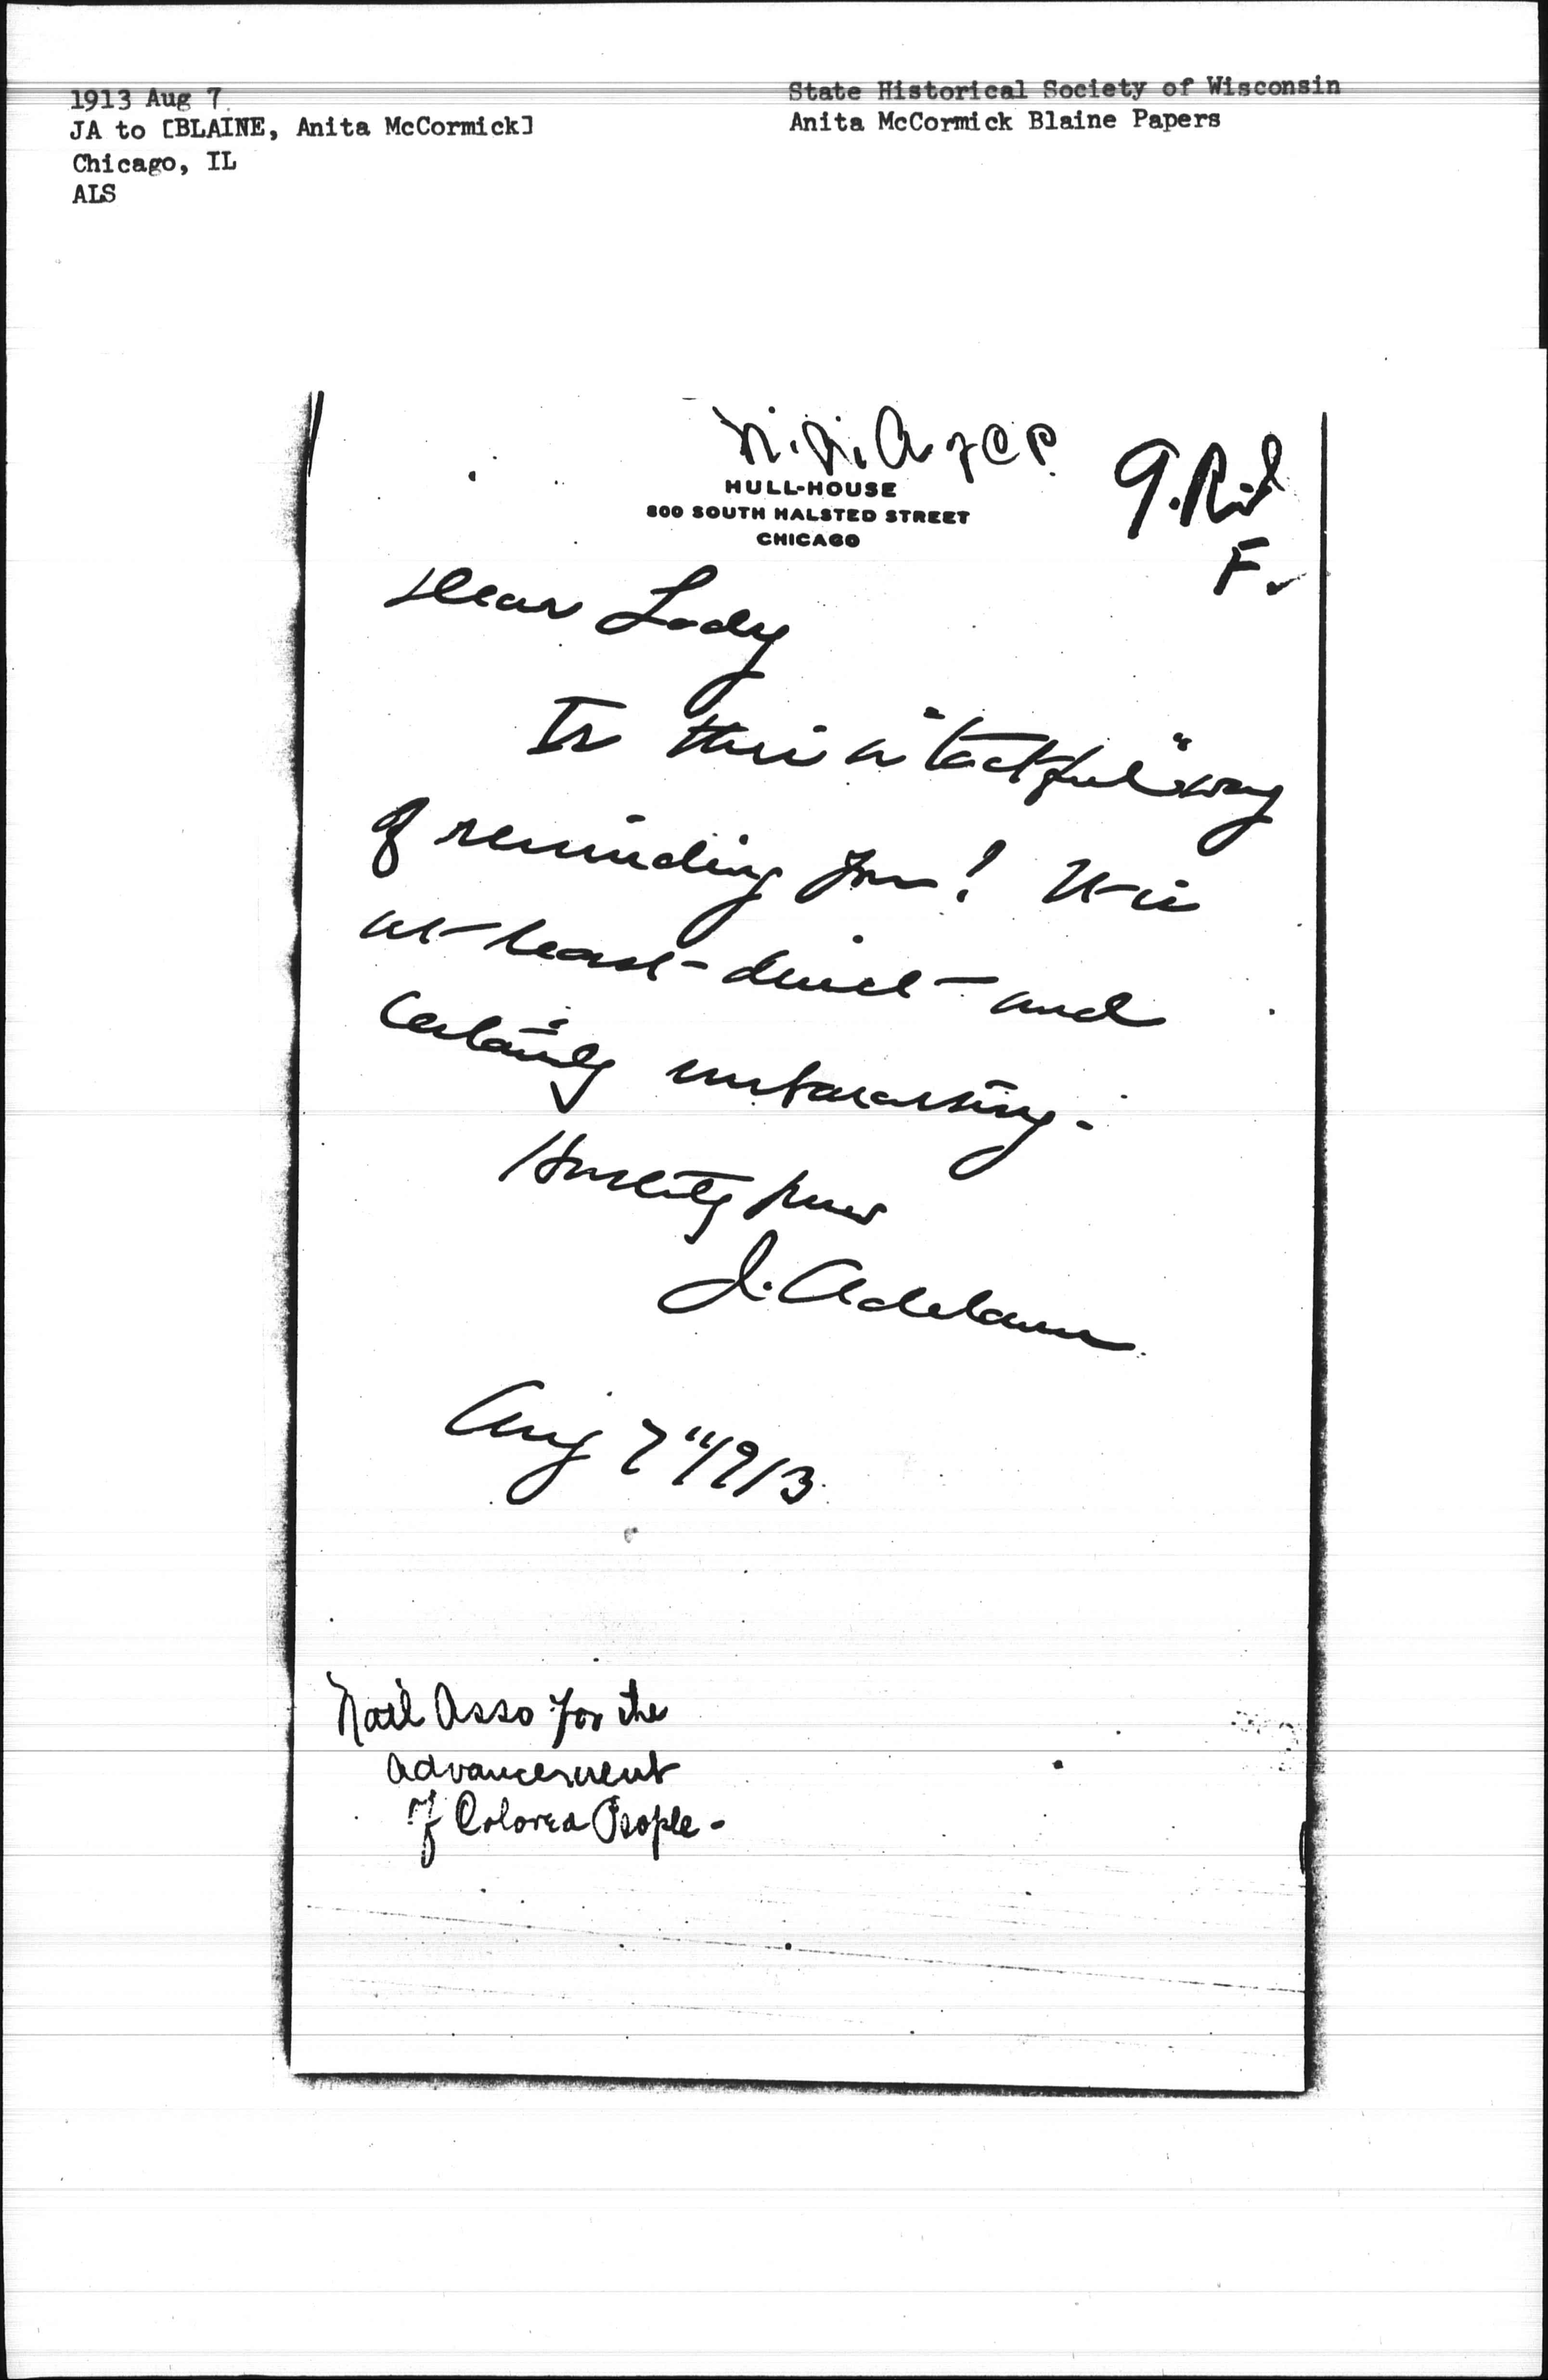 1913 Aug 7
JA to [BLAINE, Anita McCormick]
Chicago, IL
ALS
State Historical Society of Wisconsin
Anita McCormick Blaine Papers
N.N.A of C P.
HULL-HOUSE
800 SOUTH HALSTED STREET
CHICAGO
F.
Dear Lady
Is this a "tactful" way
of reminding you! It is
at least direct and
certainly
Hastily yours
J. Addams
Aug 7" 1913
Natl Asso for the
Advancement
of Colored People-